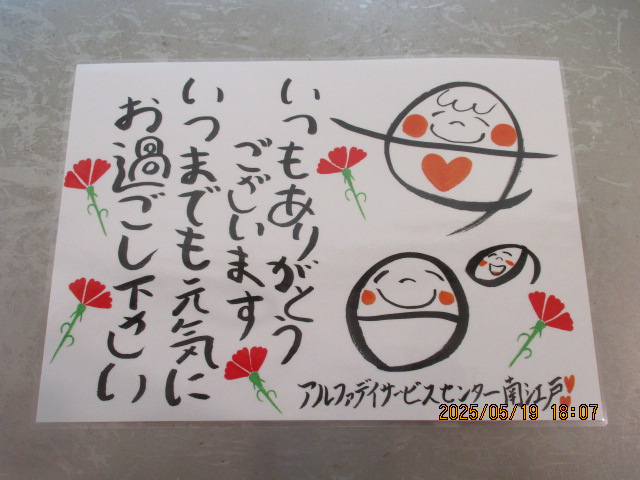 いつもありがとう
ございます
いつまでも元気に
お過ごし下さい
母の日
アルファデイサービスセンター南江戸
2025/05/19 18:07